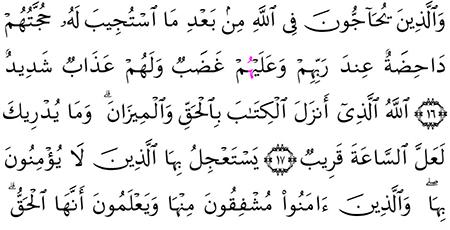 وَٱلَّذِينَ يُحَآجُّونَ فِى ٱللَّهِ مِنۢ بَعْدِ مَا ٱسْتُجِيبَ لَهُۥ حُجَّتُهُمْ
دَاحِضَةٌ عِندَ رَبِّهِمْ وَعَلَيْهِمْ غَضَبٌ وَلَهُمْ عَذَابٌ شَدِيدٌ
﴿١٦﴾ ٱللَّهُ ٱلَّذِىٓ أَنزَلَ ٱلْكِتَـٰبَ بِٱلْحَقِّ وَٱلْمِيزَانَ ۗ وَمَا يُدْرِيكَ
لَعَلَّ ٱلسَّاعَةَ قَرِيبٌ ﴿١٧﴾ يَسْتَعْجِلُ بِهَا ٱلَّذِينَ لَا يُؤْمِنُونَ
بِهَا ۖ وَٱلَّذِينَ ءَامَنُوا۟ مُشْفِقُونَ مِنْهَا وَيَعْلَمُونَ أَنَّهَا ٱلْحَقُّ ۗ